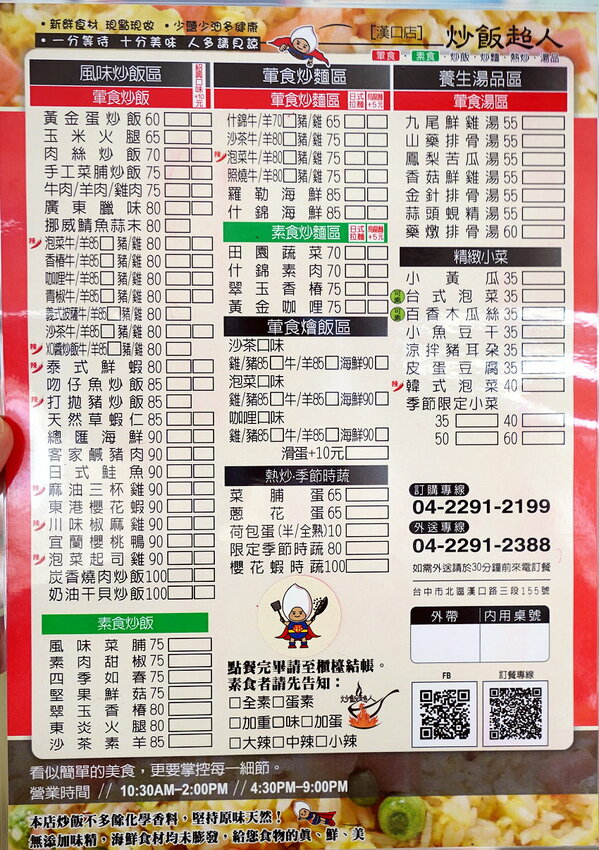 •新鮮食材 現點現做 •少鹽少油多健康
•一分等待 十分美味 人多請見諒
[漢口店] 炒飯超人
葷食・素食・炒飯・炒麵・熱炒・湯品
風味炒飯區
葷食炒飯
黃金蛋炒飯60
玉米火腿65
肉絲炒飯70
手工菜脯炒飯75
牛肉/羊肉/雞肉75
廣東臘味80
挪威鯖魚蒜末80
辣 泡菜牛/羊85□豬/雞80
香椿牛/羊85□豬/雞80
咖哩牛/羊85□豬/雞80
青椒牛/羊85□豬/雞80
義式波隆牛/羊85□豬/雞80
沙茶牛/羊85□豬/雞80
辣 XO醬炒飯牛/羊85□豬/雞80
辣 泰式鮮蝦80
吻仔魚炒飯85
辣 打拋豬炒飯85
天然草蝦仁85
總匯海鮮90
客家鹹豬肉90
日式鮭魚90
辣 麻油三杯雞90
東港櫻花蝦90
辣 川味椒麻雞90
宜蘭櫻桃鴨90
辣 泡菜起司雞90
炭香燒肉炒飯100
奶油干貝炒飯100
素食炒飯
風味菜脯75
素肉甜椒75
四季如春75
堅果鮮菇75
翠玉香椿80
東炎火腿80
沙茶素羊85
葷食炒麵區
葷食炒麵區 日式拉麵 烏龍麵+5元
什錦牛/羊70□豬/雞65
沙茶牛/羊80□豬/雞75
辣 泡菜牛/羊80□豬/雞75
照燒牛/羊80□豬/雞75
羅勒海鮮85
什錦海鮮85
素食炒麵區 日式拉麵 烏龍麵+5元
田園蔬菜70
什錦素肉70
翠玉香椿75
黃金咖哩75
葷食燴飯區
沙茶口味
雞/豬85□牛/羊85□海鮮90□
泡菜口味
雞/豬85□牛/羊85□海鮮90□
咖哩口味
雞/豬85□牛/羊85□海鮮90□
滑蛋+10元□
熱炒・季節時蔬
菜脯蛋65
蔥花蛋65
荷包蛋(半/全熟)10
限定季節時蔬80
櫻花蝦時蔬100
點餐完畢請至櫃檯結帳。
素食者請先告知：
□全素□蛋素
□加重口味□加蛋
□大辣□中辣□小辣
炒飯超人
養生湯品區
葷食湯區
九尾鮮雞湯55
山藥排骨湯55
鳳梨苦瓜湯55
香菇鮮雞湯55
金針排骨湯55
蒜頭蜆精湯55
藥燉排骨湯60
精緻小菜
小黃瓜35
台式泡菜35
百香木瓜絲35
小魚豆干35
涼拌豬耳朵35
皮蛋豆腐35
辣 韓式泡菜40
季節限定小菜
35 40
50 60
訂購專線
04-2291-2199
外送專線
04-2291-2388
如需外送請於30分鐘前來電訂餐
台中市北區漢口路三段155號
外帶 內用桌號
FB 訂餐專線
看似簡單的美食，更要掌控每一細節。
營業時間 // 10:30AM–2:00PM // 4:30PM–9:00PM
本店炒飯不多餘化學香料，堅持原味天然！
無添加味精，海鮮食材均未膨發，給您食物的真、鮮、美